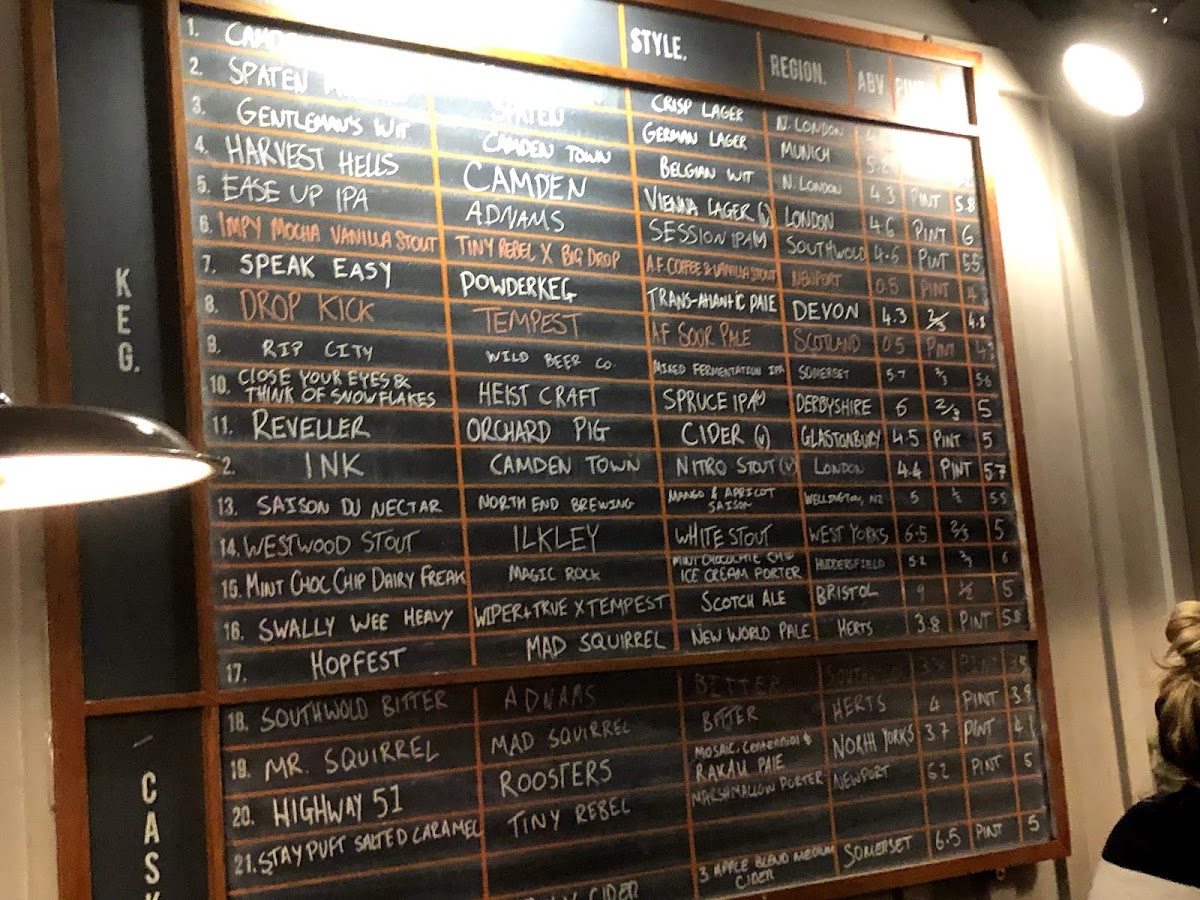 STYLE. REGION. ABV.
KEG.
1. CRISP LAGER N. LONDON
2. SPATEN SPATEN GERMAN LAGER MUNICH
3. GENTLEMAN'S WIT CAMDEN TOWN BELGIAN WIT N. LONDON 4.3 PINT 5.8
4. HARVEST HELLS CAMDEN VIENNA LAGER (v) LONDON 4.6 PINT 6
5. EASE UP IPA ADNAMS SESSION IPA SOUTHWOLD 4.6 PINT 5.5
6. IMPY MOCHA VANILLA STOUT TINY REBEL X BIG DROP A.F. COFFEE & VANILLA STOUT NEWPORT 0.5 PINT
7. SPEAK EASY POWDERKEG TRANS-ATLANTIC PALE DEVON 4.3 2/3 4.8
8. DROP KICK TEMPEST AF SOUR PALE SCOTLAND 0.5 PINT
9. RIP CITY WILD BEER CO. MIXED FERMENTATION IPA SOMERSET 5.7 2/3 5.6
10. CLOSE YOUR EYES &
THINK OF SNOWFLAKES HEIST CRAFT SPRUCE IPA DERBYSHIRE 6 2/3 5
11. REVELLER ORCHARD PIG CIDER (v) GLASTONBURY 4.5 PINT 5
2. INK CAMDEN TOWN NITRO STOUT (v) LONDON 4.4 PINT 5.7
13. SAISON DU NECTAR NORTH END BREWING MANGO & APRICOT
SAISON WELLINGTON, NZ 5 1/2 5.5
14. WESTWOOD STOUT ILKLEY WHITE STOUT WEST YORKS 6.5 2/3 5
15. MINT CHOC CHIP DAIRY FREAK MAGIC ROCK MINT CHOCOLATE CHIP
ICE CREAM PORTER HUDDERSFIELD 5.2 2/3 6
16. SWALLY WEE HEAVY WIPER + TRUE X TEMPEST SCOTCH ALE BRISTOL 9 1/2 5
17. HOPFEST MAD SQUIRREL NEW WORLD PALE HERTS 3.8 PINT 5.8
CASK
18. SOUTHWOLD BITTER ADNAMS BITTER PINT
19. MR. SQUIRREL MAD SQUIRREL BITTER HERTS 4 PINT 3.9
20. HIGHWAY 51 ROOSTERS MOSAIC, CENTENNIAL &
RAKAU PALE NORTH YORKS 3.7 PINT
21. STAY PUFT SALTED CARAMEL TINY REBEL MARSHMALLOW PORTER NEWPORT 5.2 PINT 5
CIDER 3 APPLE BLEND MEDIUM
CIDER SOMERSET 6.5 PINT 5